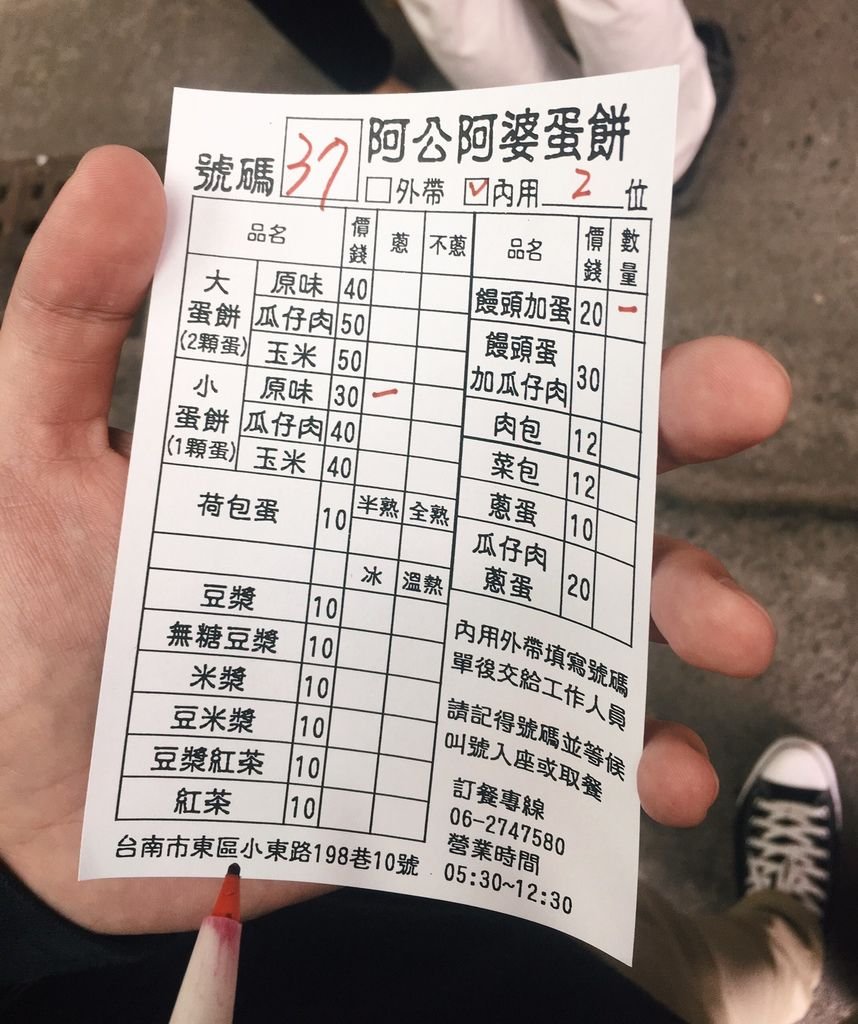 號碼 37 阿公阿婆蛋餅
□外帶 ☑內用 2 位
品名 價錢 蔥 不蔥
大蛋餅(2顆蛋) 原味 40
瓜仔肉 50
玉米 50
小蛋餅(1顆蛋) 原味 30 一
瓜仔肉 40
玉米 40
荷包蛋 10 半熟 全熟
冰 溫熱
豆漿 10
無糖豆漿 10
米漿 10
豆米漿 10
豆漿紅茶 10
紅茶 10
品名 價錢 數量
饅頭加蛋 20 一
饅頭蛋
加瓜仔肉 30
肉包 12
菜包 12
蔥蛋 10
瓜仔肉
蔥蛋 20
內用外帶填寫號碼
單後交給工作人員
請記得號碼並等候
叫號入座或取餐
訂餐專線
06-2747580
營業時間
05:30~12:30
台南市東區小東路198巷10號